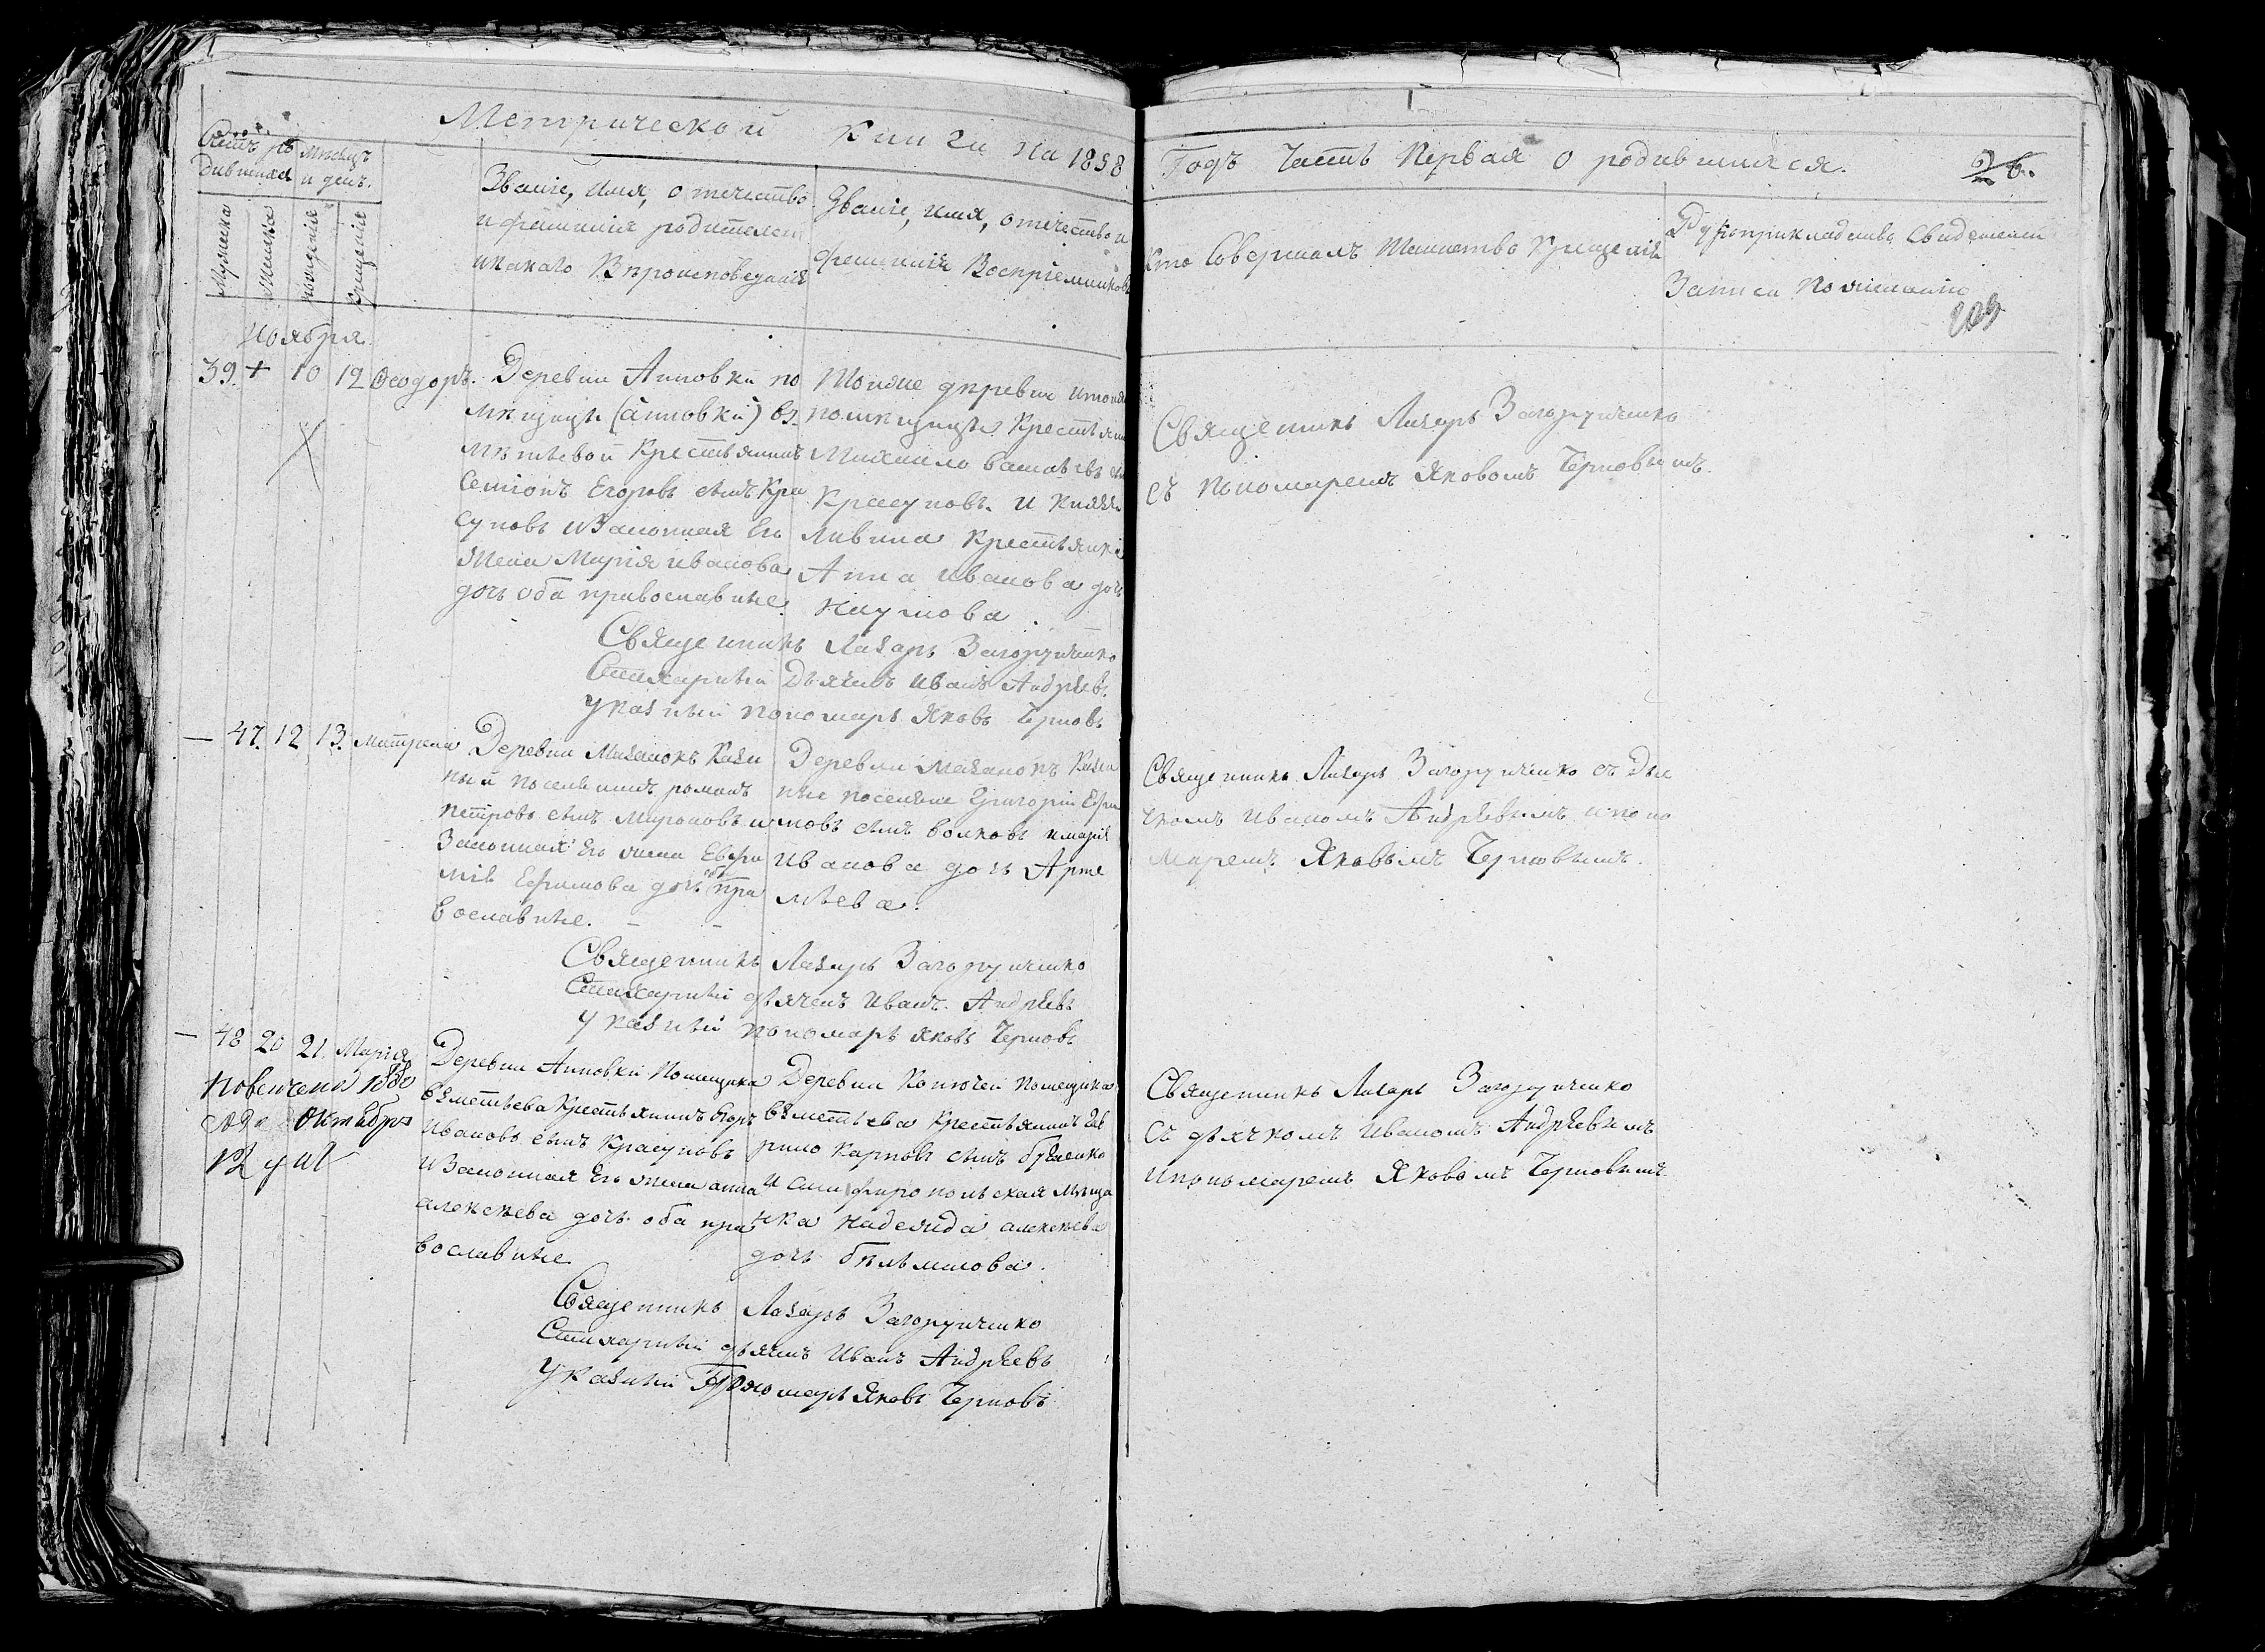 Метрической книги на 1858
Годъ Часть Первая о родившихся.
26.
Счетъ ро
дившихся
Мѣсяцъ
и день.
Мужеска
Женска
рожденія
крещенія
Званіе, Имя, отечество
и фамилія родителей
икакаго Вѣроисповеданія
Званіе, имя, отечество и
фамилія Воспріемниковъ
Кто Совершалъ Таинство Крещенія
Рукоприкладство Свидетелей
Записи по желанію
203
Ноября
39. + 10 12 Ѳеодоръ.
Деревни Анновки по
мѣщицы (Анновки) вз
мѣтьевой Крестьянинъ
Семіонъ Егоровъ сынъ Кра
суновъ иЗаконная Его
жена Марія иванова
дочь оба православные
Тойже деревни итойже
помѣщицы Крестьянинъ
Михаило
Красуновъ. и
Крестьянка
Анна Иванова дочь
Наумова.
Священникъ Лазарь Загоруйченко
съ пономаремъ Яковомъ Черновымъ.
Священникъ Лазарь Загоруйченко
Стихарный Дьячекъ Иванъ Андрѣевъ.
Указный пономарь Яковъ Черновъ
— 47. 12 13. Матрена
Деревни Мазанокъ Казен
ный поселянинъ романъ
петровъ сынъ Мироновъ и
Законная Его жена Евфи
мія Ефимова дочь оба пра
вославные.
Деревни Мазанокъ Казен
ные поселяне Григорій Ефи
мовъ сынъ волковъ имарія
Иванова дочь Арте
мьева.
Священникъ Лазарь Загоруйченко съ Дья
чкомъ Иваномъ Андрѣевымъ ипоно
маремъ Яковымъ Черновымъ.
Священникъ Лазарь Загоруйченко
Стихарный дьячекъ Иванъ Андрѣевъ
Указный пономарь Яковъ Черновъ
— 48 20 21. Марія
Повенчена 1880
года Октября
12 дня
Деревни Анновки Помещика
взметьева Крестьянинъ Егоръ
Ивановъ сынъ Красуновъ
иЗаконная Его жена анна
алексѣева дочь. оба пра
вославные
Деревни Помещика
взметьева Крестьянинъ Гав
рило Карповъ сынъ
и Симферопольская Мѣща
нка надежда алексѣева
дочь
Священникъ Лазарь Загоруйченко
съ дьячкомъ Иваномъ Андрѣевымъ
ипономаремъ Яковомъ Черновымъ
Священникъ Лазарь Загоруйченко
Стихарный дьячекъ Иванъ Андрѣевъ
Указный Пономарь Яковъ Черновъ